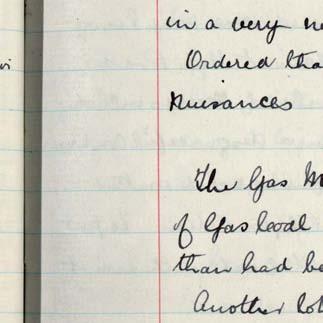 in a very
Ordered tha
Nuisances
The Gas M
of Gas Coal
than had be
Another lot